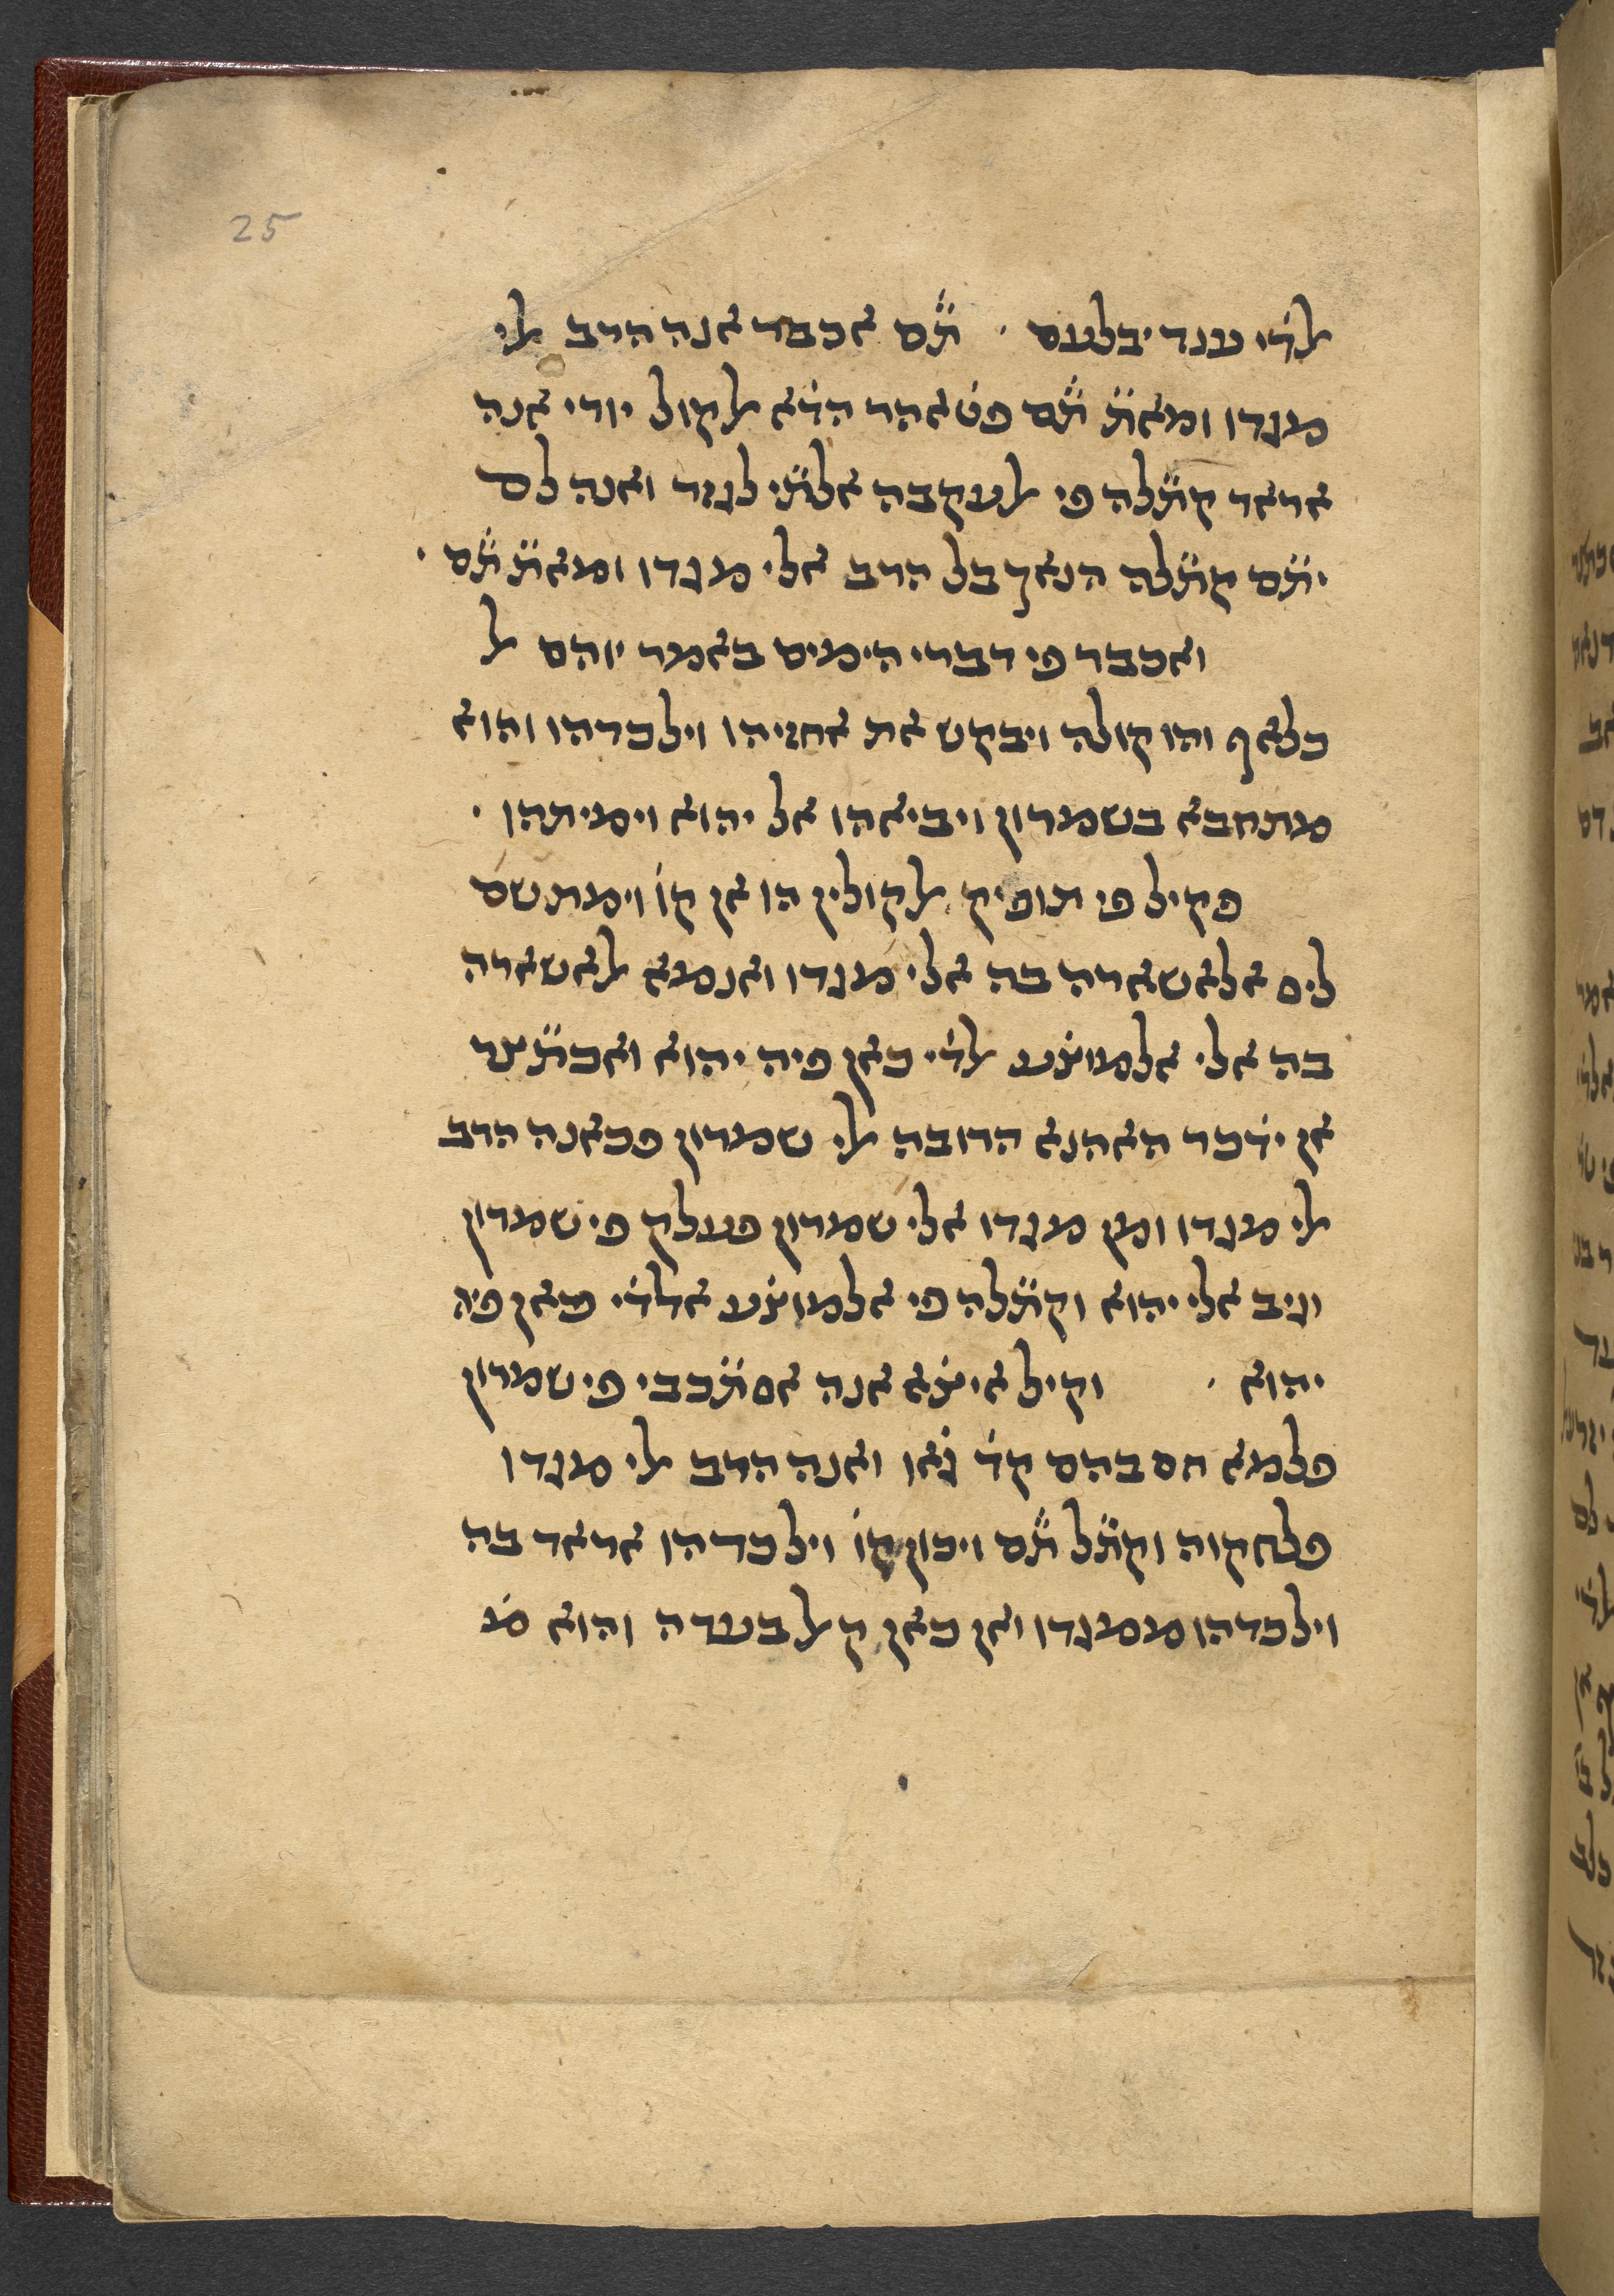 25
אלדׄי ענד יבלעם · תׄם אכבר אנה הרב אלי
מגדו ומאתׄ תׄם פטׄאהר הדׄא אלקול יורי אנה
אראד קתׄלה פי אלעקבה אלתׄי לגור ואנה לם
יתׄם קתׄלה הנאך בל הרב אלי מגדו ומאתׄ תׄם ·
ואכבר פי דברי הימים באמר יוהם אל
כלאף והו קולה ויבקש את אחזיהו וילכדהו והוא
מתחבא בשמרון ויביאהו אל יהוא וימיתהו ·
פקיל פי תופיק אלקולין הו אן קוׄ וימת שם
ליס אלאשארה בה אלי מגדו ואנמא אלאשארה
בה אלי אלמוצׄע אלדׄי כאן פיה יהוא ואכתׄצר
אן ידׄכר האהנא הרובה אלי שמרון פכאנה הרב
אלי מגדו ומן מגדו אלי שמרון פעלק פי שמרון
וגיב אלי יהוא וקתׄלה פי אלמוצׄע אלדׄי כאן פיה
יהוא · וקיל איצׄא אנה אסתׄכבי פי שמרון
פלמא חס בהם קד גׄאו ואנה הרב אלי מגדו
פלחקוה וקתׄל תׄם ויכון קוׄ וילכדהו אראד בה
וילכדהו ממגדו ואן כאן קאל בעדה והוא מׄ